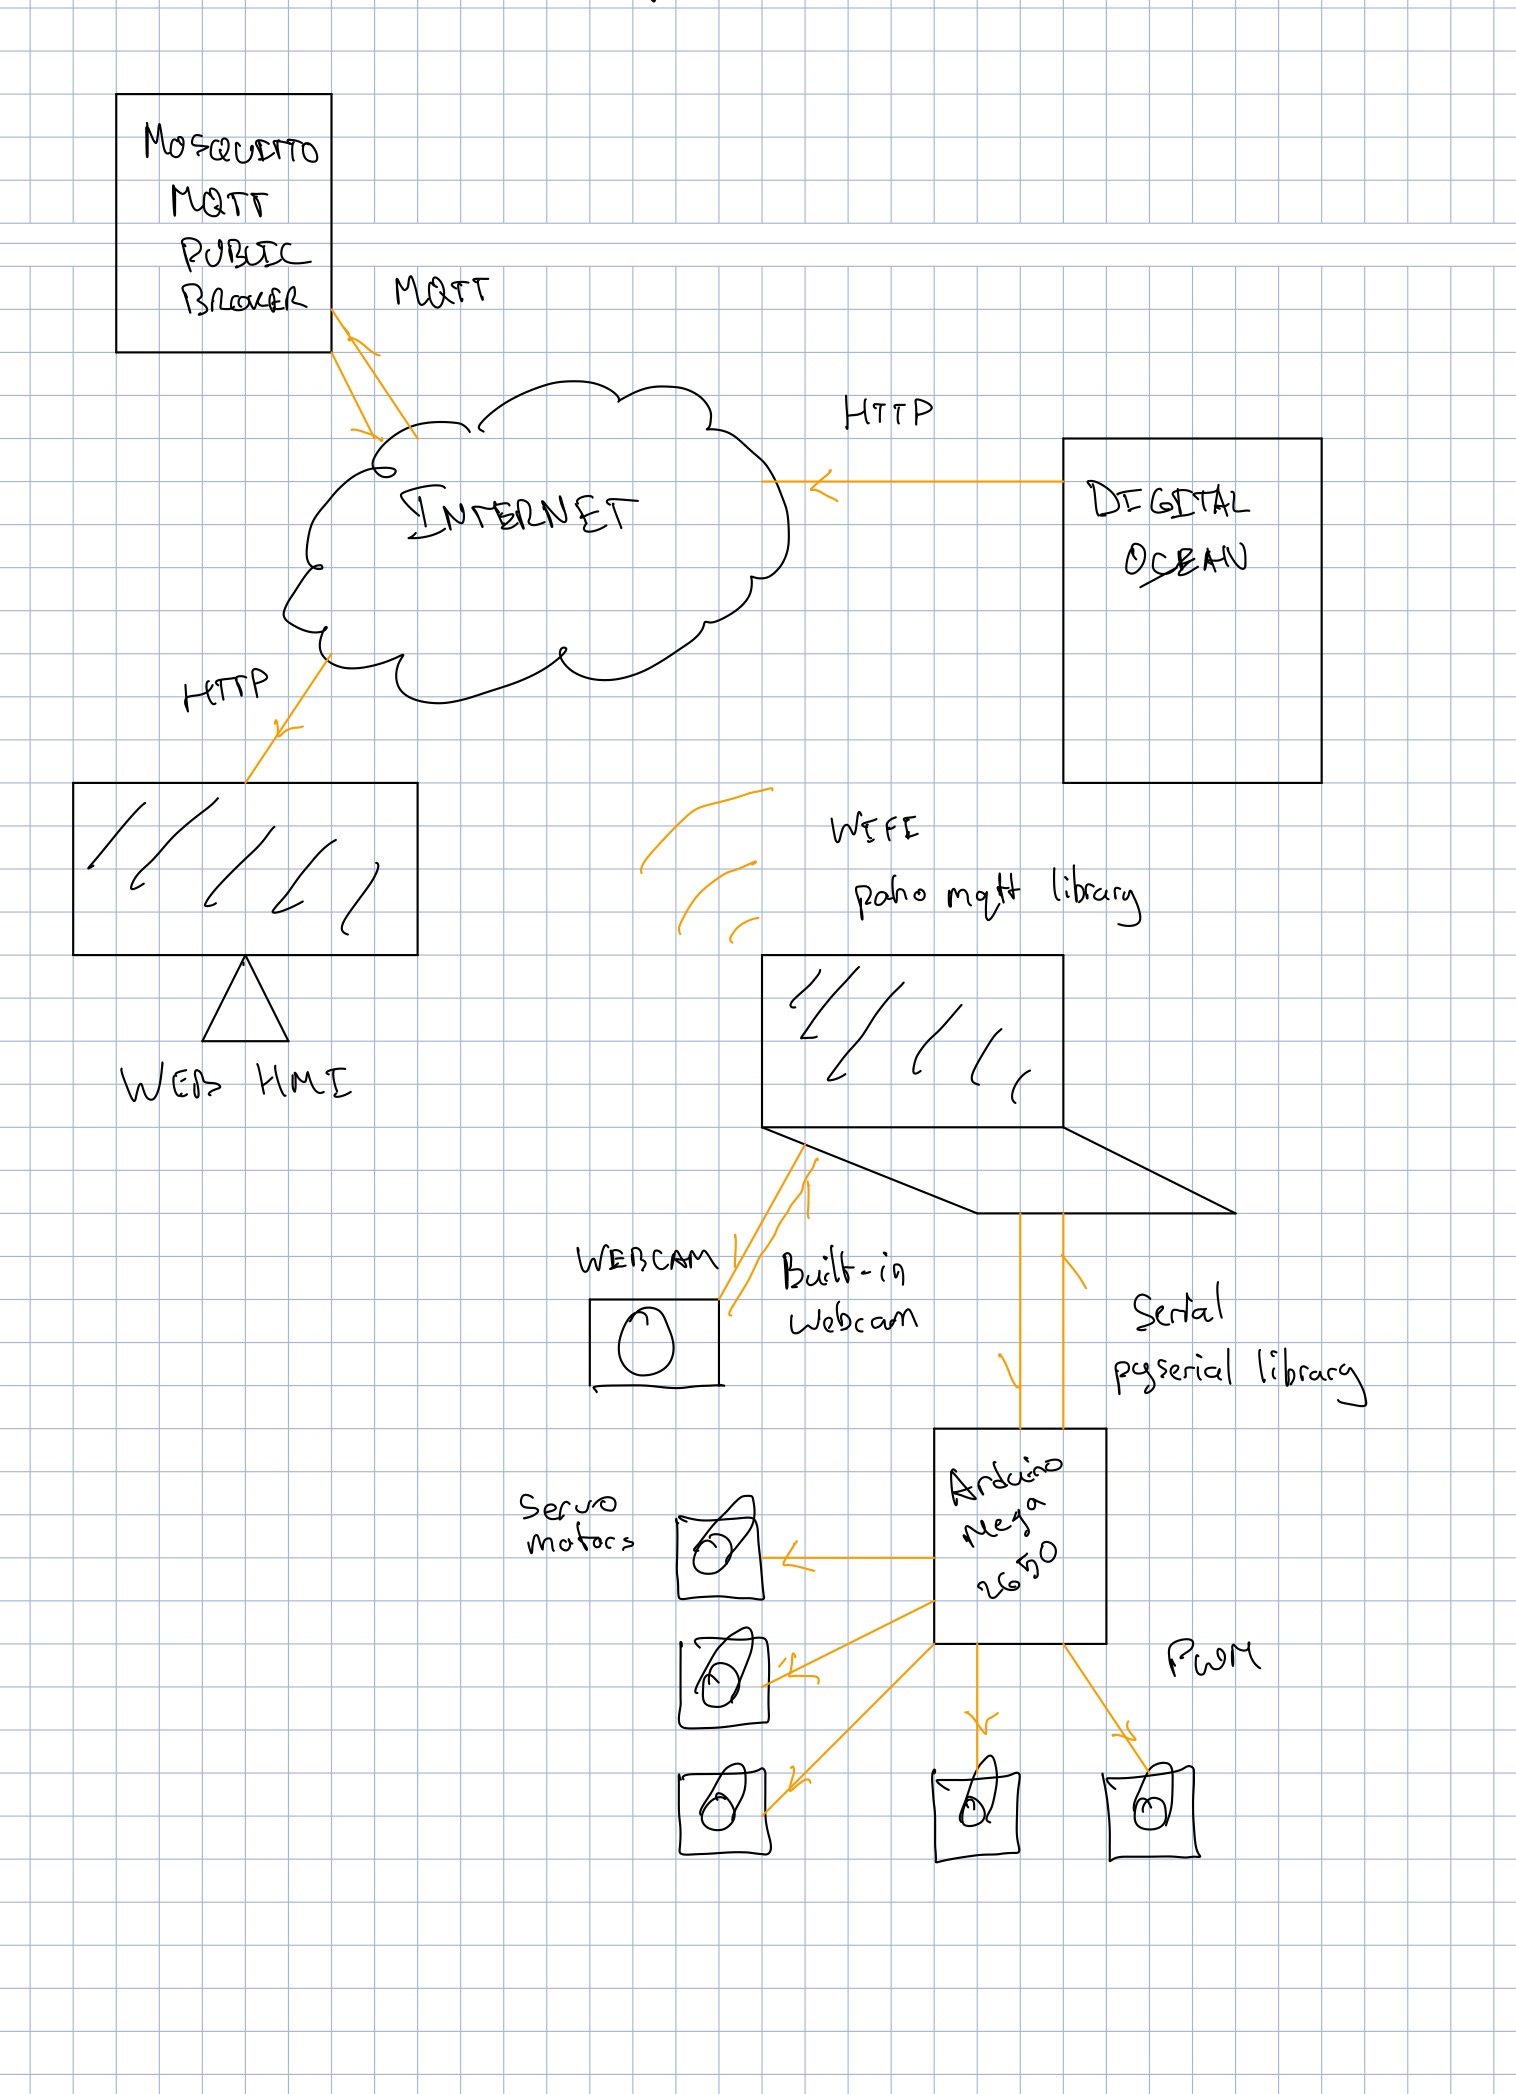 MOSQUITTO
MQTT
PUBLIC
BROKER
MQTT
HTTP
INTERNET
DIGITAL
OCEAN
HTTP
WIFI
paho mqtt library
WEB HMI
WEBCAM
Built-in
Webcam
Serial
pyserial library
Arduino
Mega
2650
Servo
motors
PWM